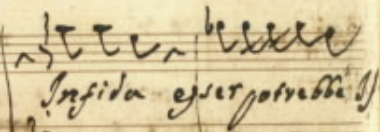 Infida esser potrebbe Is